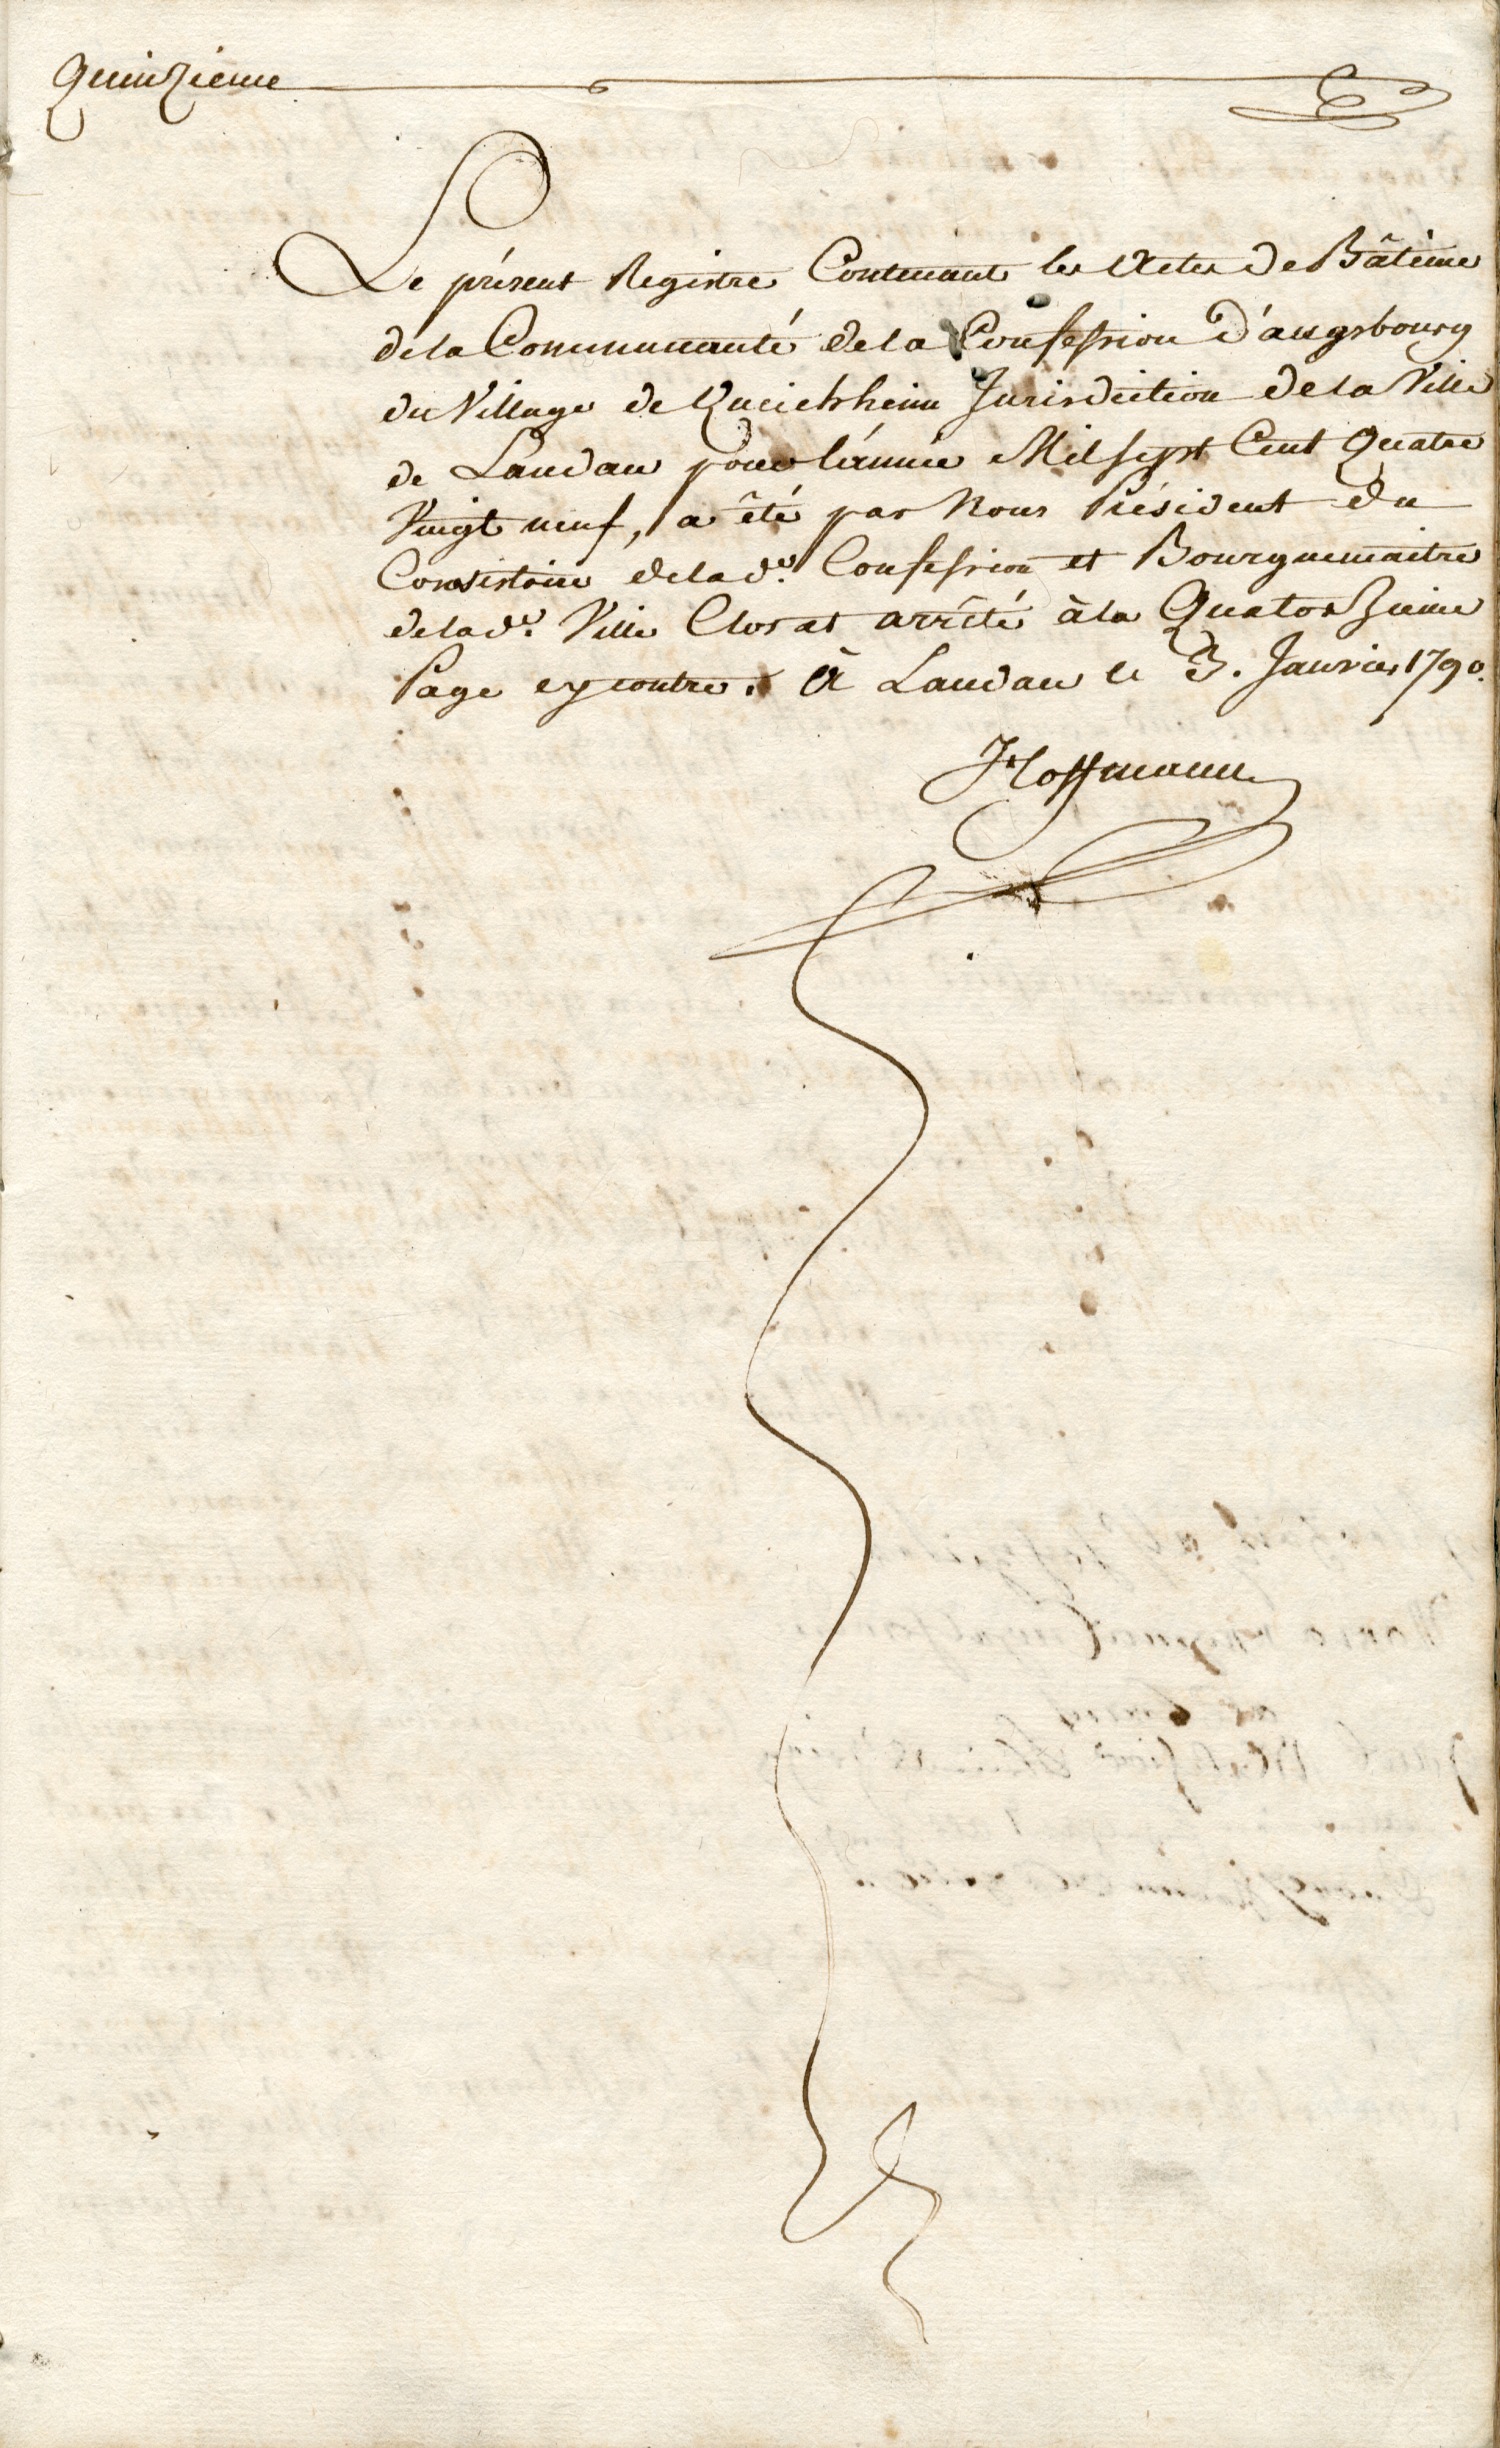 Quinzieme
Le présent Registre Contenant les Actes de Bâtême
de la Communauté de la Confession D'augsbourg
du Village de Queichheim Jurisdiction de la Ville
de Landau pour l'année Mil sept Cent Quatre
Vingt neuf, a êté par Nous Président du
Consistoire de la de. Confession et Bourguemaitre
de la de. Ville Clos et arrêté à la Quatorzieme
Page cy contre. A Landau le 3. Janvier 1790.
Hoffmann